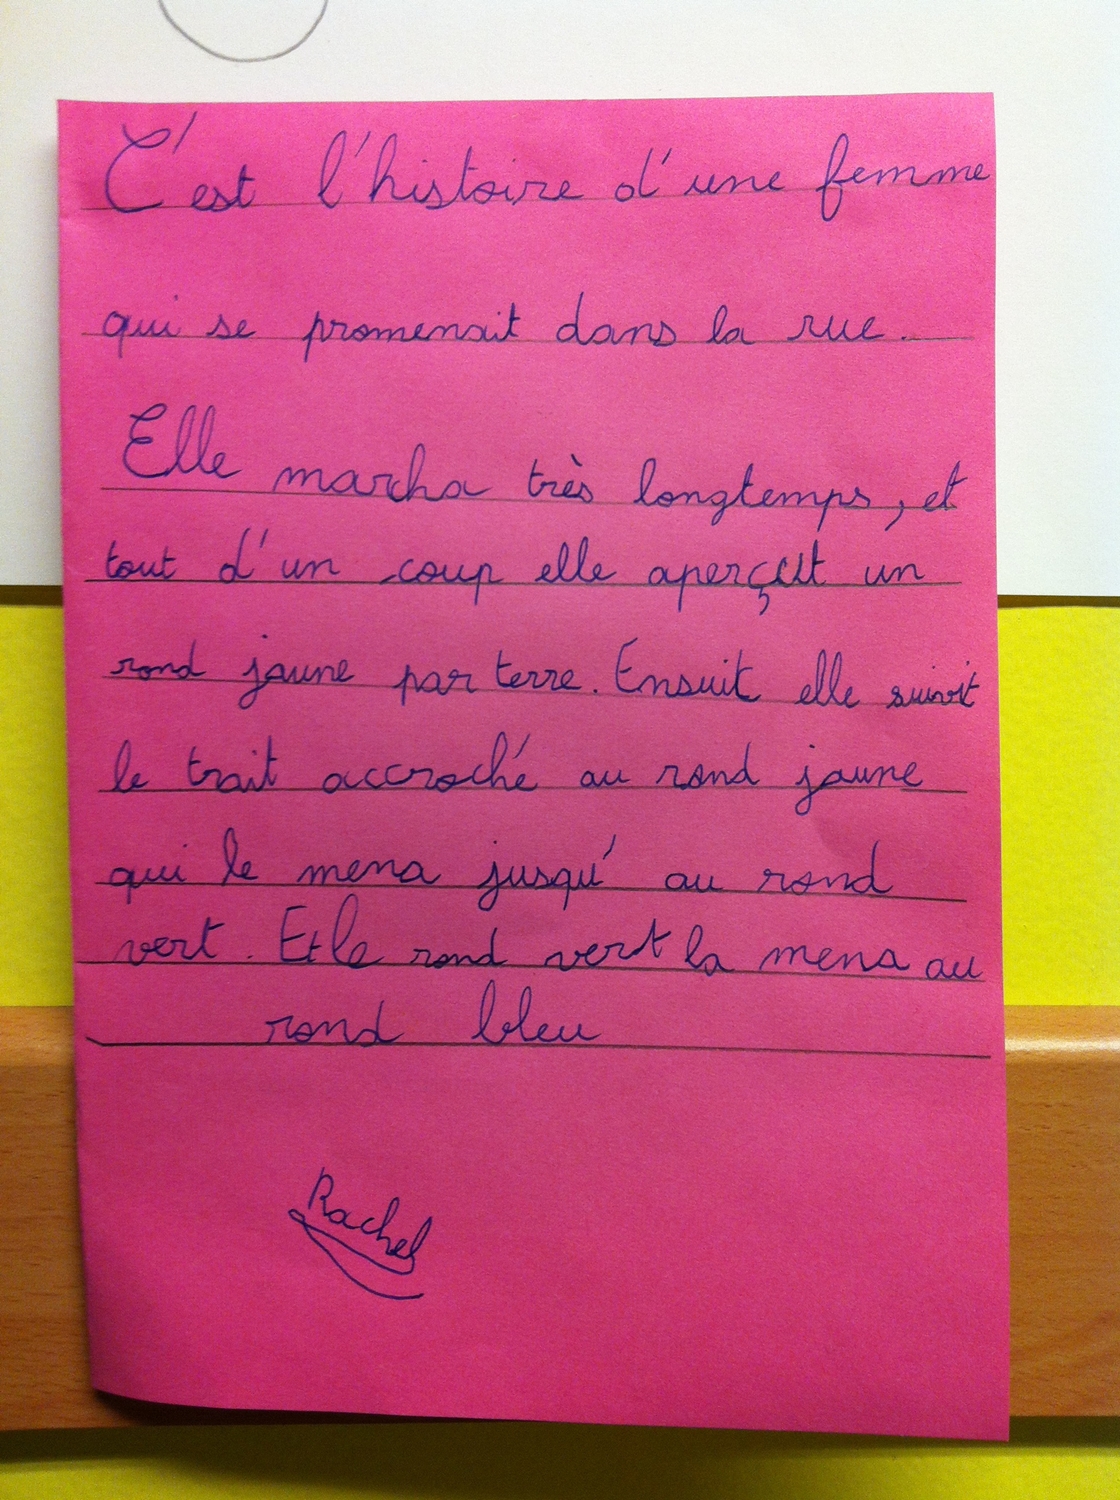 C'est l'histoire d'une femme
qui se promenait dans la rue.
Elle marcha très longtemps, et
tout d'un coup elle aperçut un
rond jaune par terre. Ensuit elle suivit
le trait accroché au rond jaune
qui le mena jusqu' au rond
vert. Et le rond vert la mena au
rond bleu
Rachel